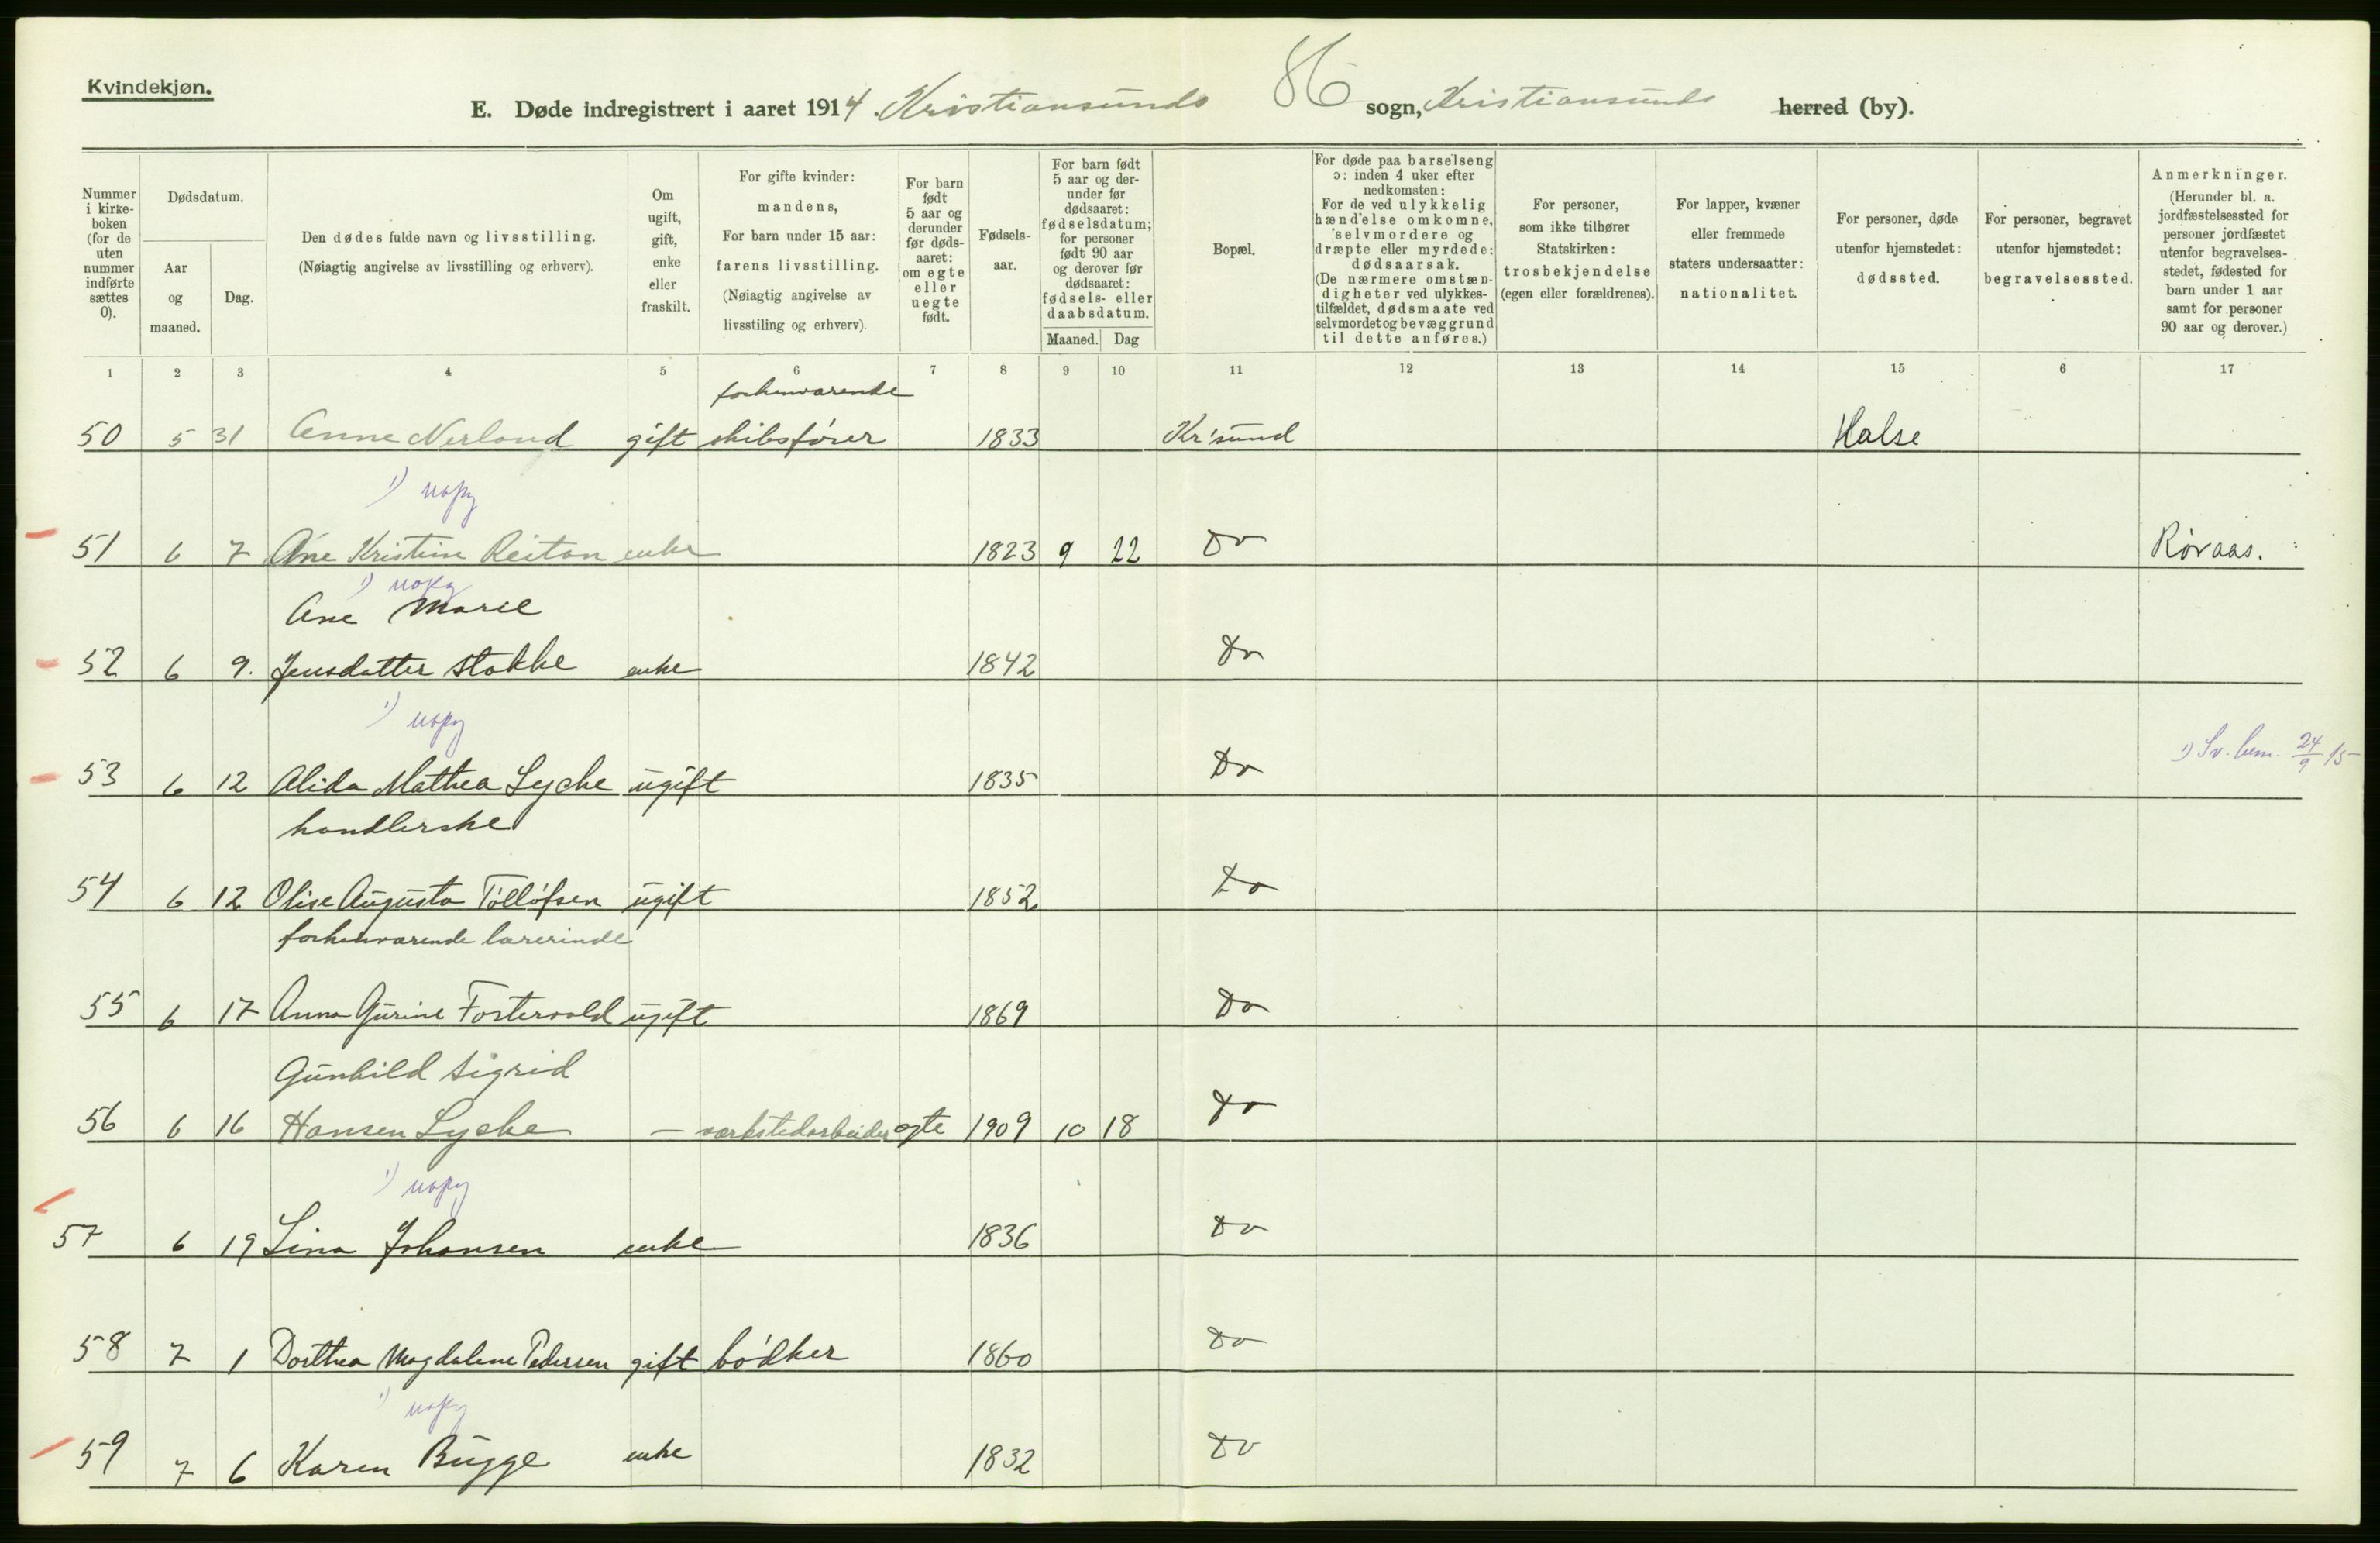 Kvindekjøn.
86
E. Døde indregistrert i aaret 1914. Kristiansunds sogn, Kristiansunds herred (by).
Nummer i kirkeboken (for de uten nummer indførte sættes 0).
Dødsdatum.
Aar og maaned.
Dag.
Den dødes fulde navn og livsstilling.
(Nøiagtig angivelse av livsstilling og erhverv).
Om ugift, gift, enke eller fraskilt.
For gifte kvinder: mandens, For barn under 15 aar: farens livsstilling. (Nøiagtig angivelse av livsstiling og erhverv).
For barn født 5 aar og derunder før dødsaaret: om egte eller uegte født.
Fødselsaar.
For barn født 5 aar og derunder før dødsaaret: fødselsdatum; for personer født 90 aar og derover før dødsaaret: fødsels- eller daabsdatum.
Maaned. Dag
Bopæl.
For døde paa barselseng ɔ: inden 4 uker efter nedkomsten: For de ved ulykkelig hændelse omkomne, selvmordere og dræpte eller myrdede: dødsaarsak. (De nærmere omstændigheter ved ulykkestilfældet, dødsmaate ved selvmordet og bevæggrund til dette anføres.)
For personer, som ikke tilhører Statskirken: trosbekjendelse (egen eller forældrenes).
For lapper, kvæner eller fremmede staters undersaatter: nationalitet.
For personer, døde utenfor hjemstedet: dødssted.
For personer, begravet utenfor hjemstedet: begravelsessted.
Anmerkninger. (Herunder bl. a. jordfæstelsessted for personer jordfæstet utenfor begravelsesstedet, fødested for barn under 1 aar samt for personer 90 aar og derover.)
1 2 3 4 5 6 7 8 9 10 11 12 13 14 15 6 17
forhenværende
50 5 31 Anne Nerland gift skibsfører 1833 Kr'sund Halse
1)
51 6 7 Ane Kristine Reitan enke 1823 9 22 Do Røraas.
1)
Ane Marie
52 6 9. Jensdatter Stokke enke 1842 Do
1)
1) Sv. bem. 24/9 15
53 6 12 Alida Mathea Lyche ugift 1835 Do
handlerske
54 6 12 Olise Augusta Tolløfsen ugift 1852 Do
forhenværende lærerinde
55 6 17 Anna Gurine Fostervold ugift 1869 Do
Gunhild Sigrid
56 6 16 Hansen Lyche — værkstedarbeider egte 1909 10 18 Do
1)
57 6 19 Lina Johansen enke 1836 Do
58 7 1 Dorthea Magdalene Pedersen gift bødker 1860 Do
1)
59 7 6 Karen Bugge enke 1832 Do